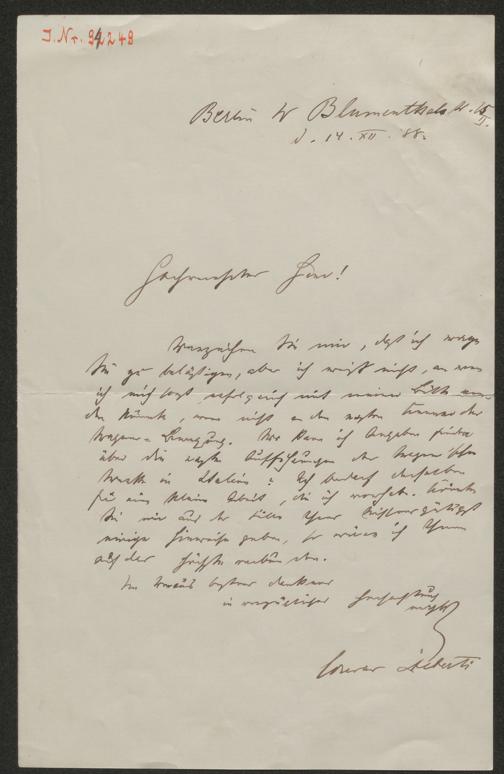 J.Nr. 94249
Berlin W Blumenthalstr. 15
II.
d. 14. XII. 88.
Hochverehrter Herr!
Verzeihen Sie mir, daß ich wage
Sie zu belästigen, aber ich weiß nicht, an wen
ich mich sonst erfolgreich mit meiner Bitte wen-
den könnte, wenn nicht an den ersten Kenner der
Wagner-Bewegung. Wo kann ich Angaben finden
über die ersten Aufführungen der Wagner'schen
Werke in Italien? Ich bedarf derselben
für eine kleine Arbeit, die ich vorhabe. Könnten
Sie mir aus der Fülle Ihrer
einige Hinweise geben, so wäre ich Ihnen
auf das höchste verbunden.
Im Voraus bestens dankend
in vorzüglicher Hochachtung